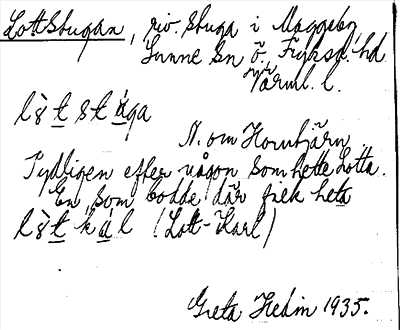 Lottstugan, riv. stuga i Maggeby,
Sunne sn Ö. Fryksd. hd
Värml. l.
lòt stúga
N. om Hornkjärn
Tydligen efter någon som hette Lotta.
En, som bodde där fick heta
lòt kál (Lott-Karl)
Greta Hedin 1935.